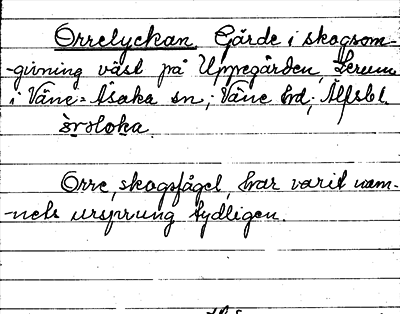 Orrelyckan Gärde i skogsom-
-givning väst på Uppegården, Lerum
i Väne-Åsaka sn; Väne hd; Älfsbl.
òrəloka.
Orre, skogsfågel, har varit nam-
-nets ursprung tydligen.